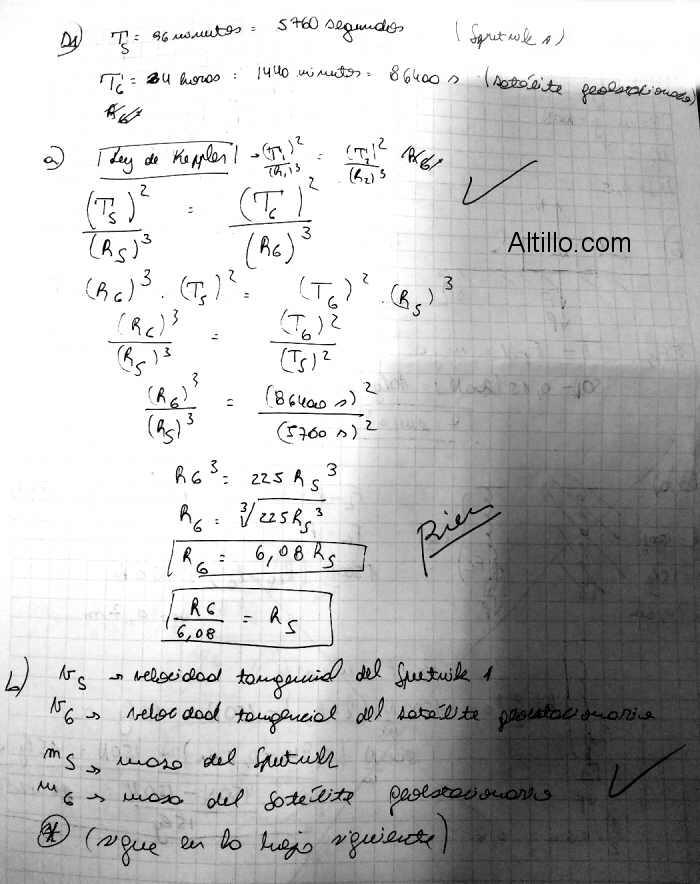 D1) T_S = 96 minutos = 5760 segundos (Sputnik 1)
T_G = 24 horas = 1440 minutos = 86400 s (satélite geoestacionario)
a) |Ley de Keppler| → (T_1)^2/(R_1)^3 = (T_2)^2/(R_2)^3
(T_S)^2/(R_S)^3 = (T_G)^2/(R_G)^3
Altillo.com
(R_G)^3 . (T_S)^2 = (T_G)^2 . (R_S)^3
(R_G)^3/(R_S)^3 = (T_G)^2/(T_S)^2
(R_G)^3/(R_S)^3 = (86400 s)^2/(5760 s)^2
R_G^3 = 225 R_S^3
R_G = ∛225 R_S^3
R_G = 6,08 R_S
Bien
R_G/6,08 = R_S
b) v_S → velocidad tangencial del Sputnik 1
v_G → velocidad tangencial del satélite geoestacionario
m_S → masa del Sputnik
m_G → masa del satélite geoestacionario
* (sigue en la hoja siguiente)